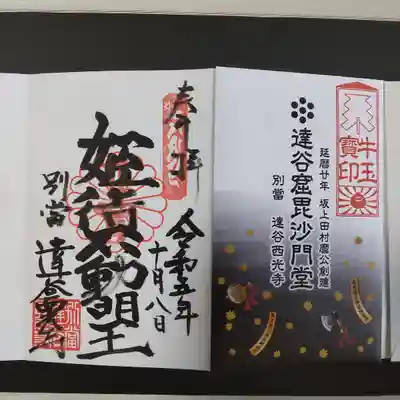 奉拝
令和五年
十月八日
姫待不動明王
別當
達谷西光寺
牛玉
寶印
延暦廿年 坂上田村麿公創建
達谷窟毘沙門堂
別當 達谷西光寺